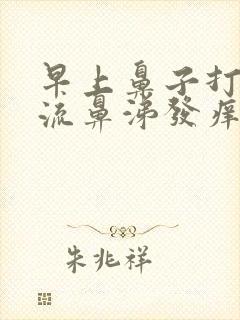 早上鼻子打
流鼻涕發痒
朱兆祥